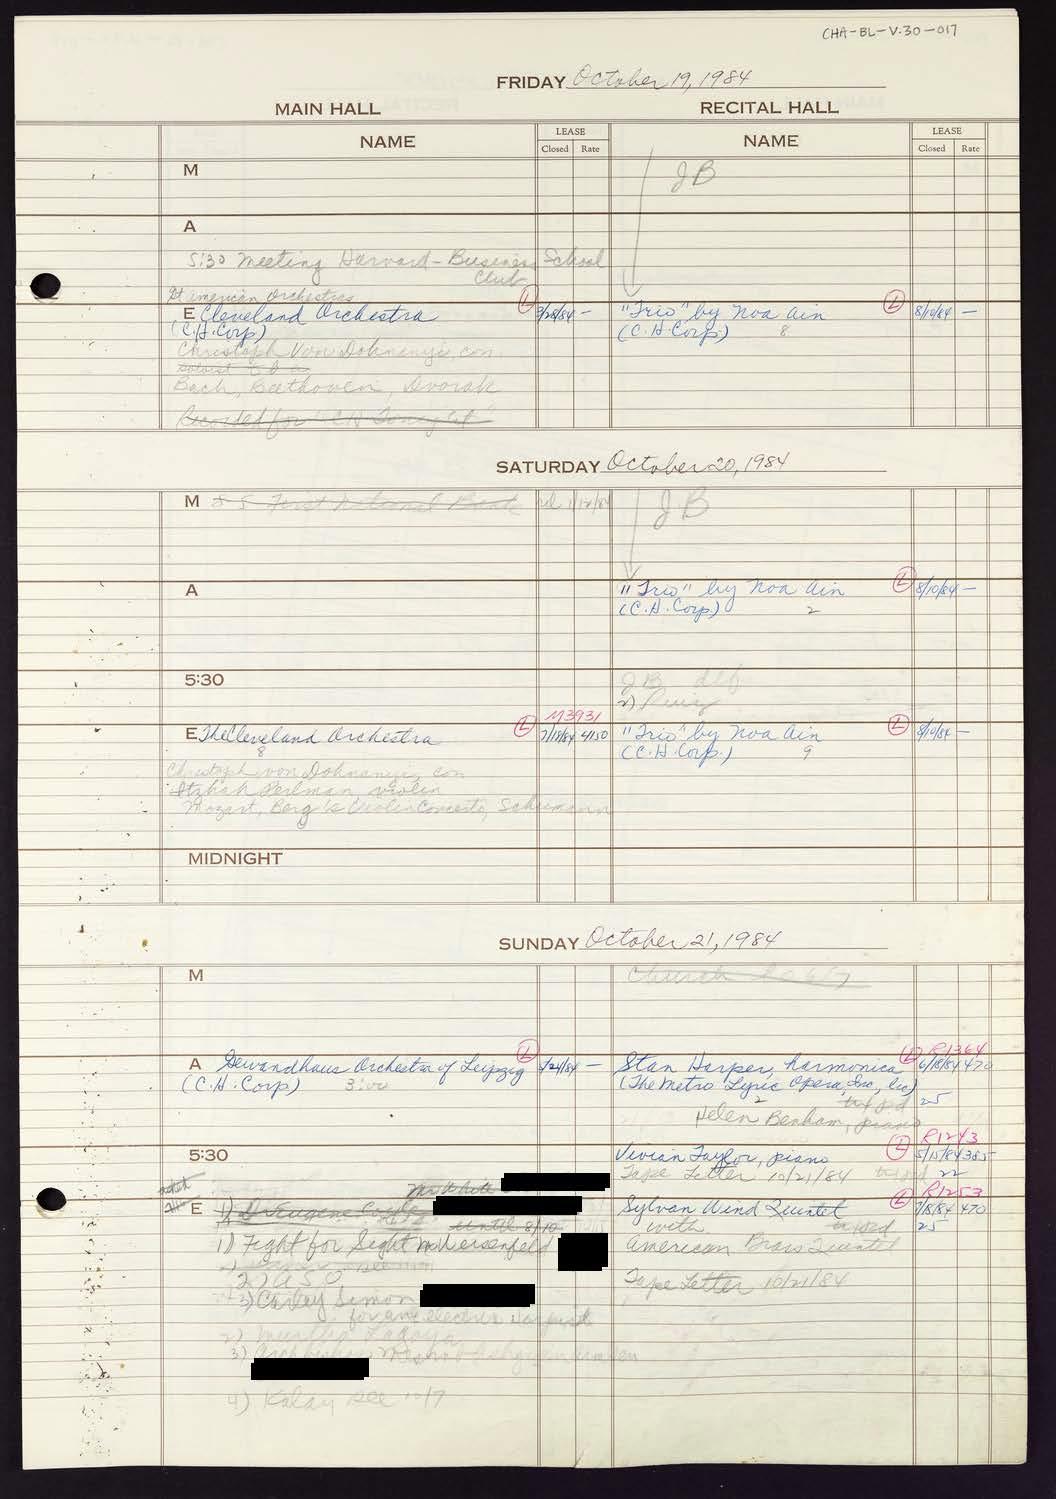 CHA-BL-V.30-017
FRIDAY October 19, 1984
MAIN HALL
RECITAL HALL
NAME
LEASE
Closed Rate
NAME
LEASE
Closed Rate
M
JB
A
5:30 Meeting Harvard-Business School
Club
American Orchestras
E Cleveland Orchestra L 3/28/84 –
(C.H. Corp)
"Trio" by Noa Ain L 8/10/84 –
(C.H. Corp) 8
Christoph Von Dohnanyi, con.
soloist
Bach, Beethoven, Dvorak
Recorded for "CH Tonight"
SATURDAY October 20, 1984
M 8-5 First National Bank rel 1/12/84
JB
A
"Trio" by Noa Ain L 8/10/84 –
(C.H. Corp) 2
5:30
JB
2)
M3931
E The Cleveland Orchestra L 7/18/84 4150
8
"Trio" by Noa Ain L 8/10/84 –
(C.H. Corp.) 9
Christoph von Dohnanyi, con
Itzhak Perlman violin
Mozart, Berg's Violin Concerto, Schumann
MIDNIGHT
SUNDAY October 21, 1984
M
Church
A Gewandhaus Orchestra of Leipzig L 1/24/84 –
(C.H. Corp) 3:00
R1364
Stan Harper, harmonica L 6/18/84 470
(The Metro Lyric Opera, Inc, lic)
25
2
Helen Benham, piano
5:30
R1243
Vivian Taylor, piano L 5/15/84 385
Tape Letter 10/21/84 22
E
1) D. Eugene
until 8/10
R1253
Sylvan Wind Quintet L 7/8/84 470
with 25
American Brass Quintet
Tape Letter 10/21/84
1) Fight for Sight
2) ASO
3) Carley Simon
for an electric Harpist
2)
3) Archbishop
4) Kalay see 10/7